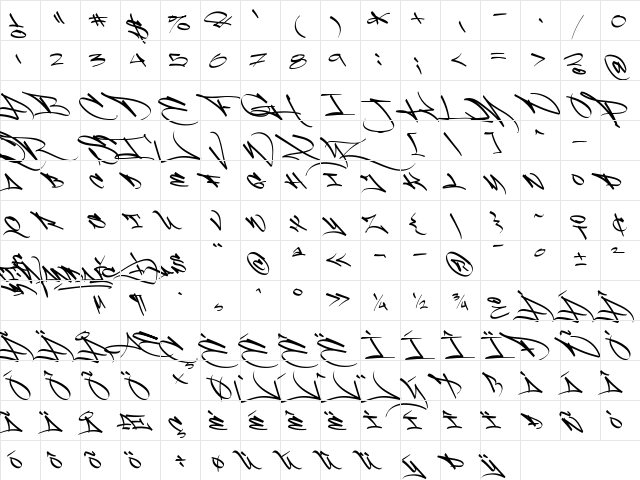 " # $ % & ' ( ) * + , - . / 0
1 2 3 4 5 6 7 8 9 : ; < = > ? @
A B C D E F G H I J K L M N O P
Q R S T U V W X Y Z [ \ ] ^ _
A B C D E F G H I J K L M N O P
Q R S T U V W X Y Z { | } ~
¨ © ª « ¬ - ® ¯ ° ± ²
µ ¶ · ¸ ¹ º » ¼ ½ ¾ ¿ À Á Â
Ã Ä Å Æ Ç È É Ê Ë Ì Í Î Ï Ð Ñ Ò
Ó Ô Õ Ö × Ø Ù Ú Û Ü Ý Þ ß À Á Â
Ã Ä Å Æ Ç È É Ê Ë Ì Í Î Ï Ð Ñ Ò
Ó Ô Õ Ö ÷ Ø Ù Ú Û Ü Ý Þ Ÿ